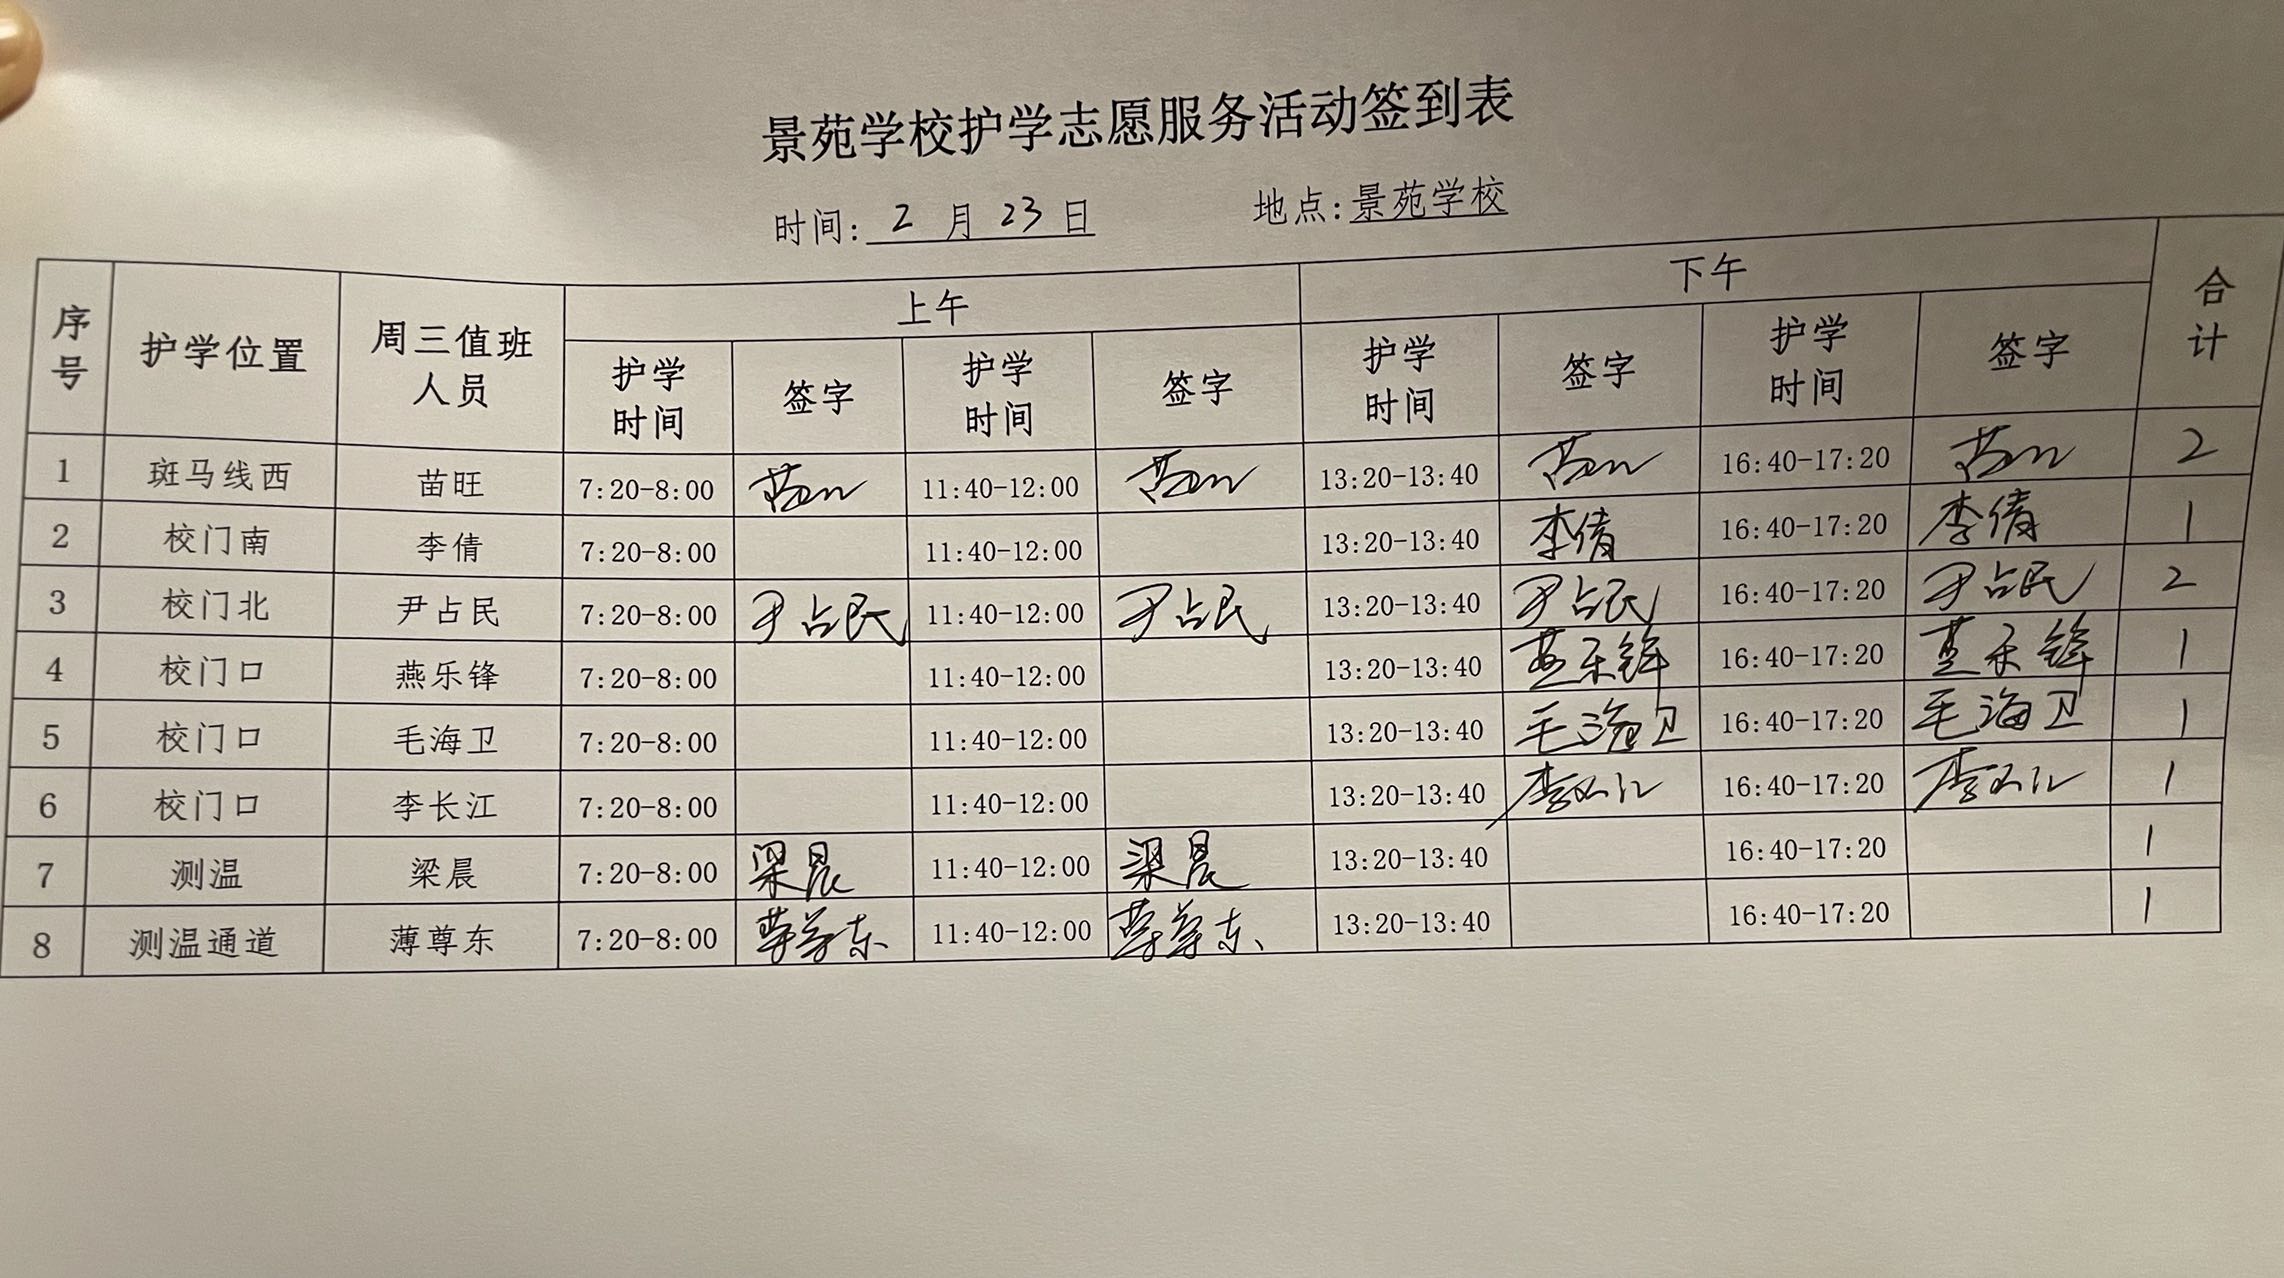 景苑学校护学志愿服务活动签到表
时间: 2 月 23 日 地点:景苑学校
序号 护学位置 周三值班人员 上午 下午 合计
护学时间 签字 护学时间 签字 护学时间 签字 护学时间 签字
1 斑马线西 苗旺 7:20-8:00 苗旺 11:40-12:00 苗旺 13:20-13:40 苗旺 16:40-17:20 苗旺 2
2 校门南 李倩 7:20-8:00 11:40-12:00 13:20-13:40 李倩 16:40-17:20 李倩 1
3 校门北 尹占民 7:20-8:00 尹占民 11:40-12:00 尹占民 13:20-13:40 尹占民 16:40-17:20 尹占民 2
4 校门口 燕乐锋 7:20-8:00 11:40-12:00 13:20-13:40 燕乐锋 16:40-17:20 燕乐锋 1
5 校门口 毛海卫 7:20-8:00 11:40-12:00 13:20-13:40 毛海卫 16:40-17:20 毛海卫 1
6 校门口 李长江 7:20-8:00 11:40-12:00 13:20-13:40 李长江 16:40-17:20 李长江 1
7 测温 梁晨 7:20-8:00 梁晨 11:40-12:00 梁晨 13:20-13:40 16:40-17:20 1
8 测温通道 薄尊东 7:20-8:00 薄尊东 11:40-12:00 薄尊东 13:20-13:40 16:40-17:20 1